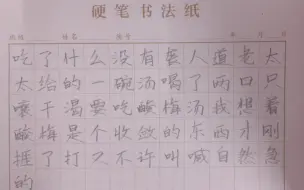 硬笔书法纸
班级 姓名 学号
吃了什么没有老人道老太
太给的一碗汤喝了两口只
嚷干渴要吃酸梅汤我想着
酸梅是个收敛的东西才刚
捱了打又不许叫喊自然急
的